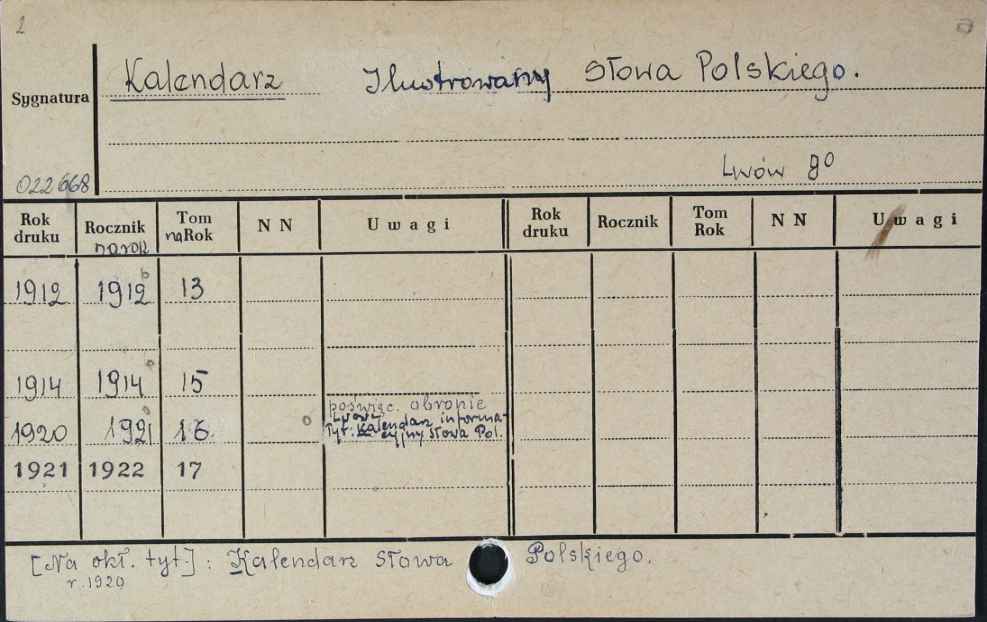 2
Kalendarz Ilustrowany Słowa Polskiego.
Sygnatura
Lwów 8º
022668
Rok druku Rocznik na rok Tom na Rok N N Uwagi Rok druku Rocznik Tom Rok N N Uwagi
1912 1912 b 13
1914 1914 o 15
1920 1921 o 16. o poświęc. obronie Lwowa
Tyt. Kalendarz informacyjny Słowa Pol.
1921 1922 17
[Na okł. tyt.]: Kalendarz Słowa Polskiego.
r. 1920